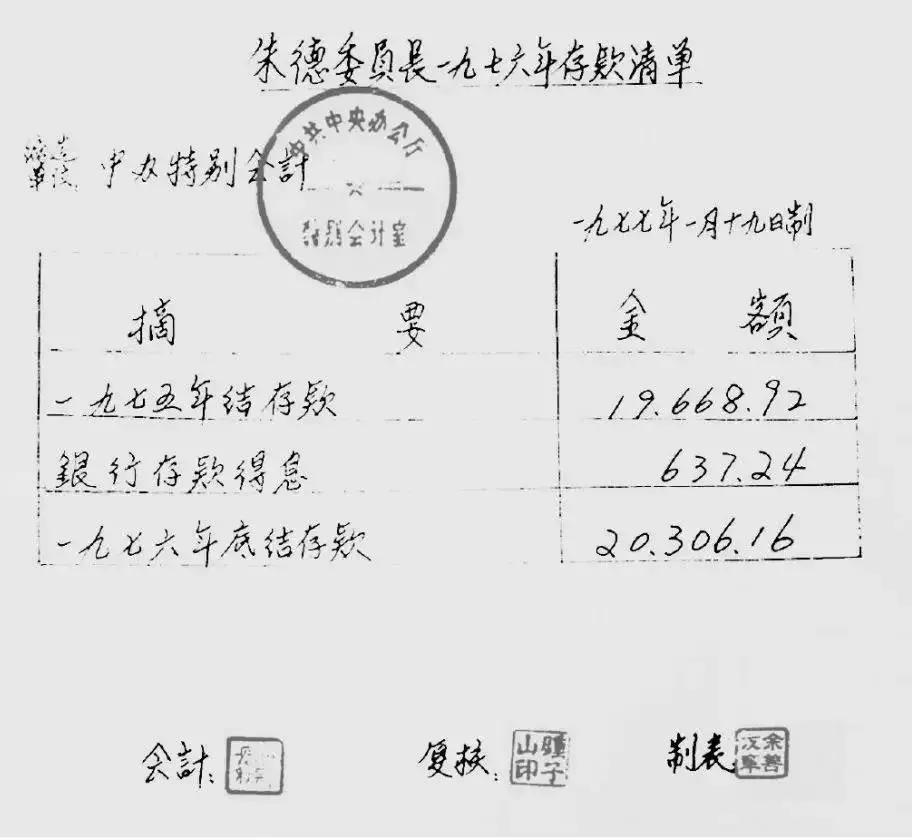 朱德委員長一九七六年存款清单
中共中央办公厅
特别会计室
中办特别会計
一九七七年一月十九日制
摘 要 金 額
一九七五年结存款 19.668.92
銀行存款得息 637.24
一九七六年底结存款 20.306.16
会計: 复核: 制表
山 子
印
余善